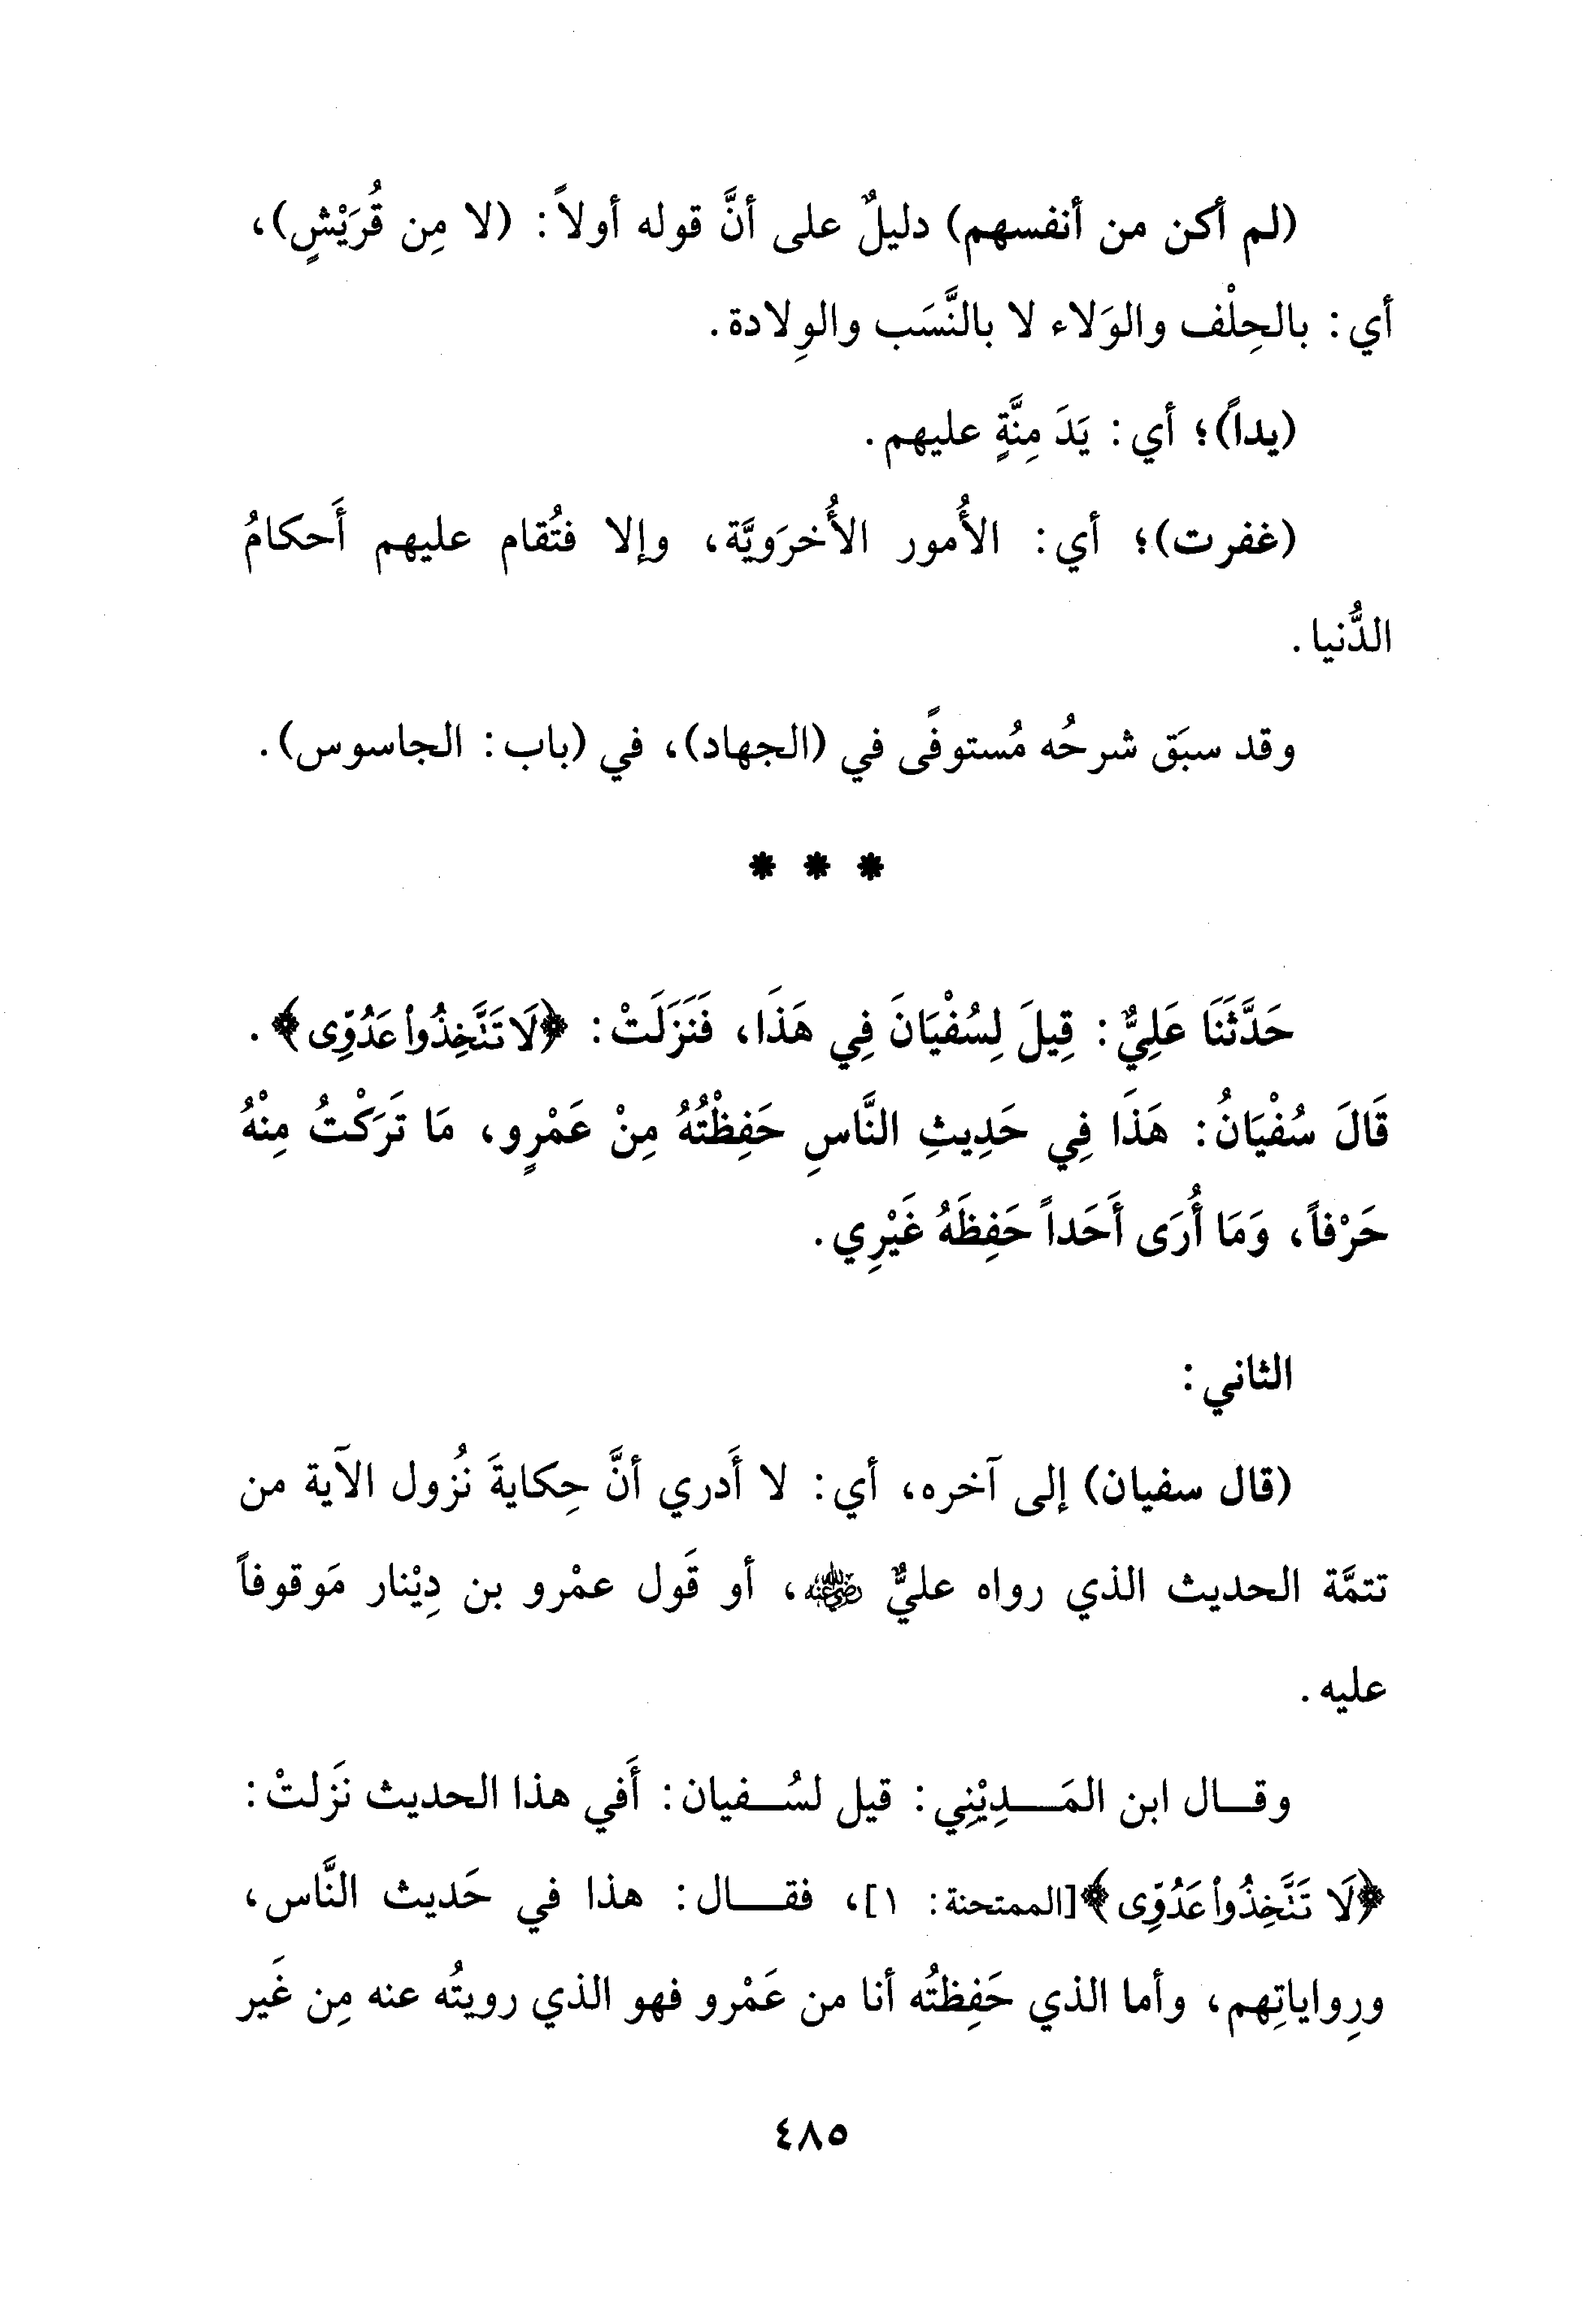 (لم أكن من أنفسهم) دليلٌ على أنَّ قوله أولاً: (لا مِن قُرَيْشٍ)،
أي: بالحِلْف والوَلاء لا بالنَّسَب والوِلادة.
(يداً)؛ أي: يَدَ مِنَّةٍ عليهم.
(غفرت)؛ أي: الأُمور الأُخرَويَّة، وإلا فتُقام عليهم أَحكامُ
الدُّنيا.
وقد سبَق شرحُه مُستوفًى في (الجهاد)، في (باب: الجاسوس).
* * *
حَدَّثَنَا عَلِيٌّ: قِيلَ لِسُفْيَانَ فِي هَذَا، فَنَزَلَتْ: ﴿لَا تَنَّخِذُواْ عَدُوِّى﴾.
قَالَ سُفْيَانُ: هَذَا فِي حَدِيثِ النَّاسِ حَفِظْتُهُ مِنْ عَمْرٍو، مَا تَرَكْتُ مِنْهُ
حَرْفاً، وَمَا أُرَى أَحَداً حَفِظَهُ غَيْرِي.
الثاني:
(قال سفيان) إلى آخره، أي: لا أَدري أنَّ حِكايةَ نُزول الآية من
تتمَّة الحديث الذي رواه عليٌّ رضي الله عنه، أو قَول عمْرو بن دِيْنار مَوقوفاً
عليه.
وقــال ابن المَــدِيْنِي: قيل لسُــفيان: أَفي هذا الحديث نَزلتْ:
﴿لَا تَنَّخِذُواْ عَدُوِّى﴾[الممتحنة: ١]، فقــال: هذا في حَديث النَّاس،
ورِواياتِهم، وأما الذي حَفِظتُه أنا من عَمْرو فهو الذي رويتُه عنه مِن غَير
٤٨٥